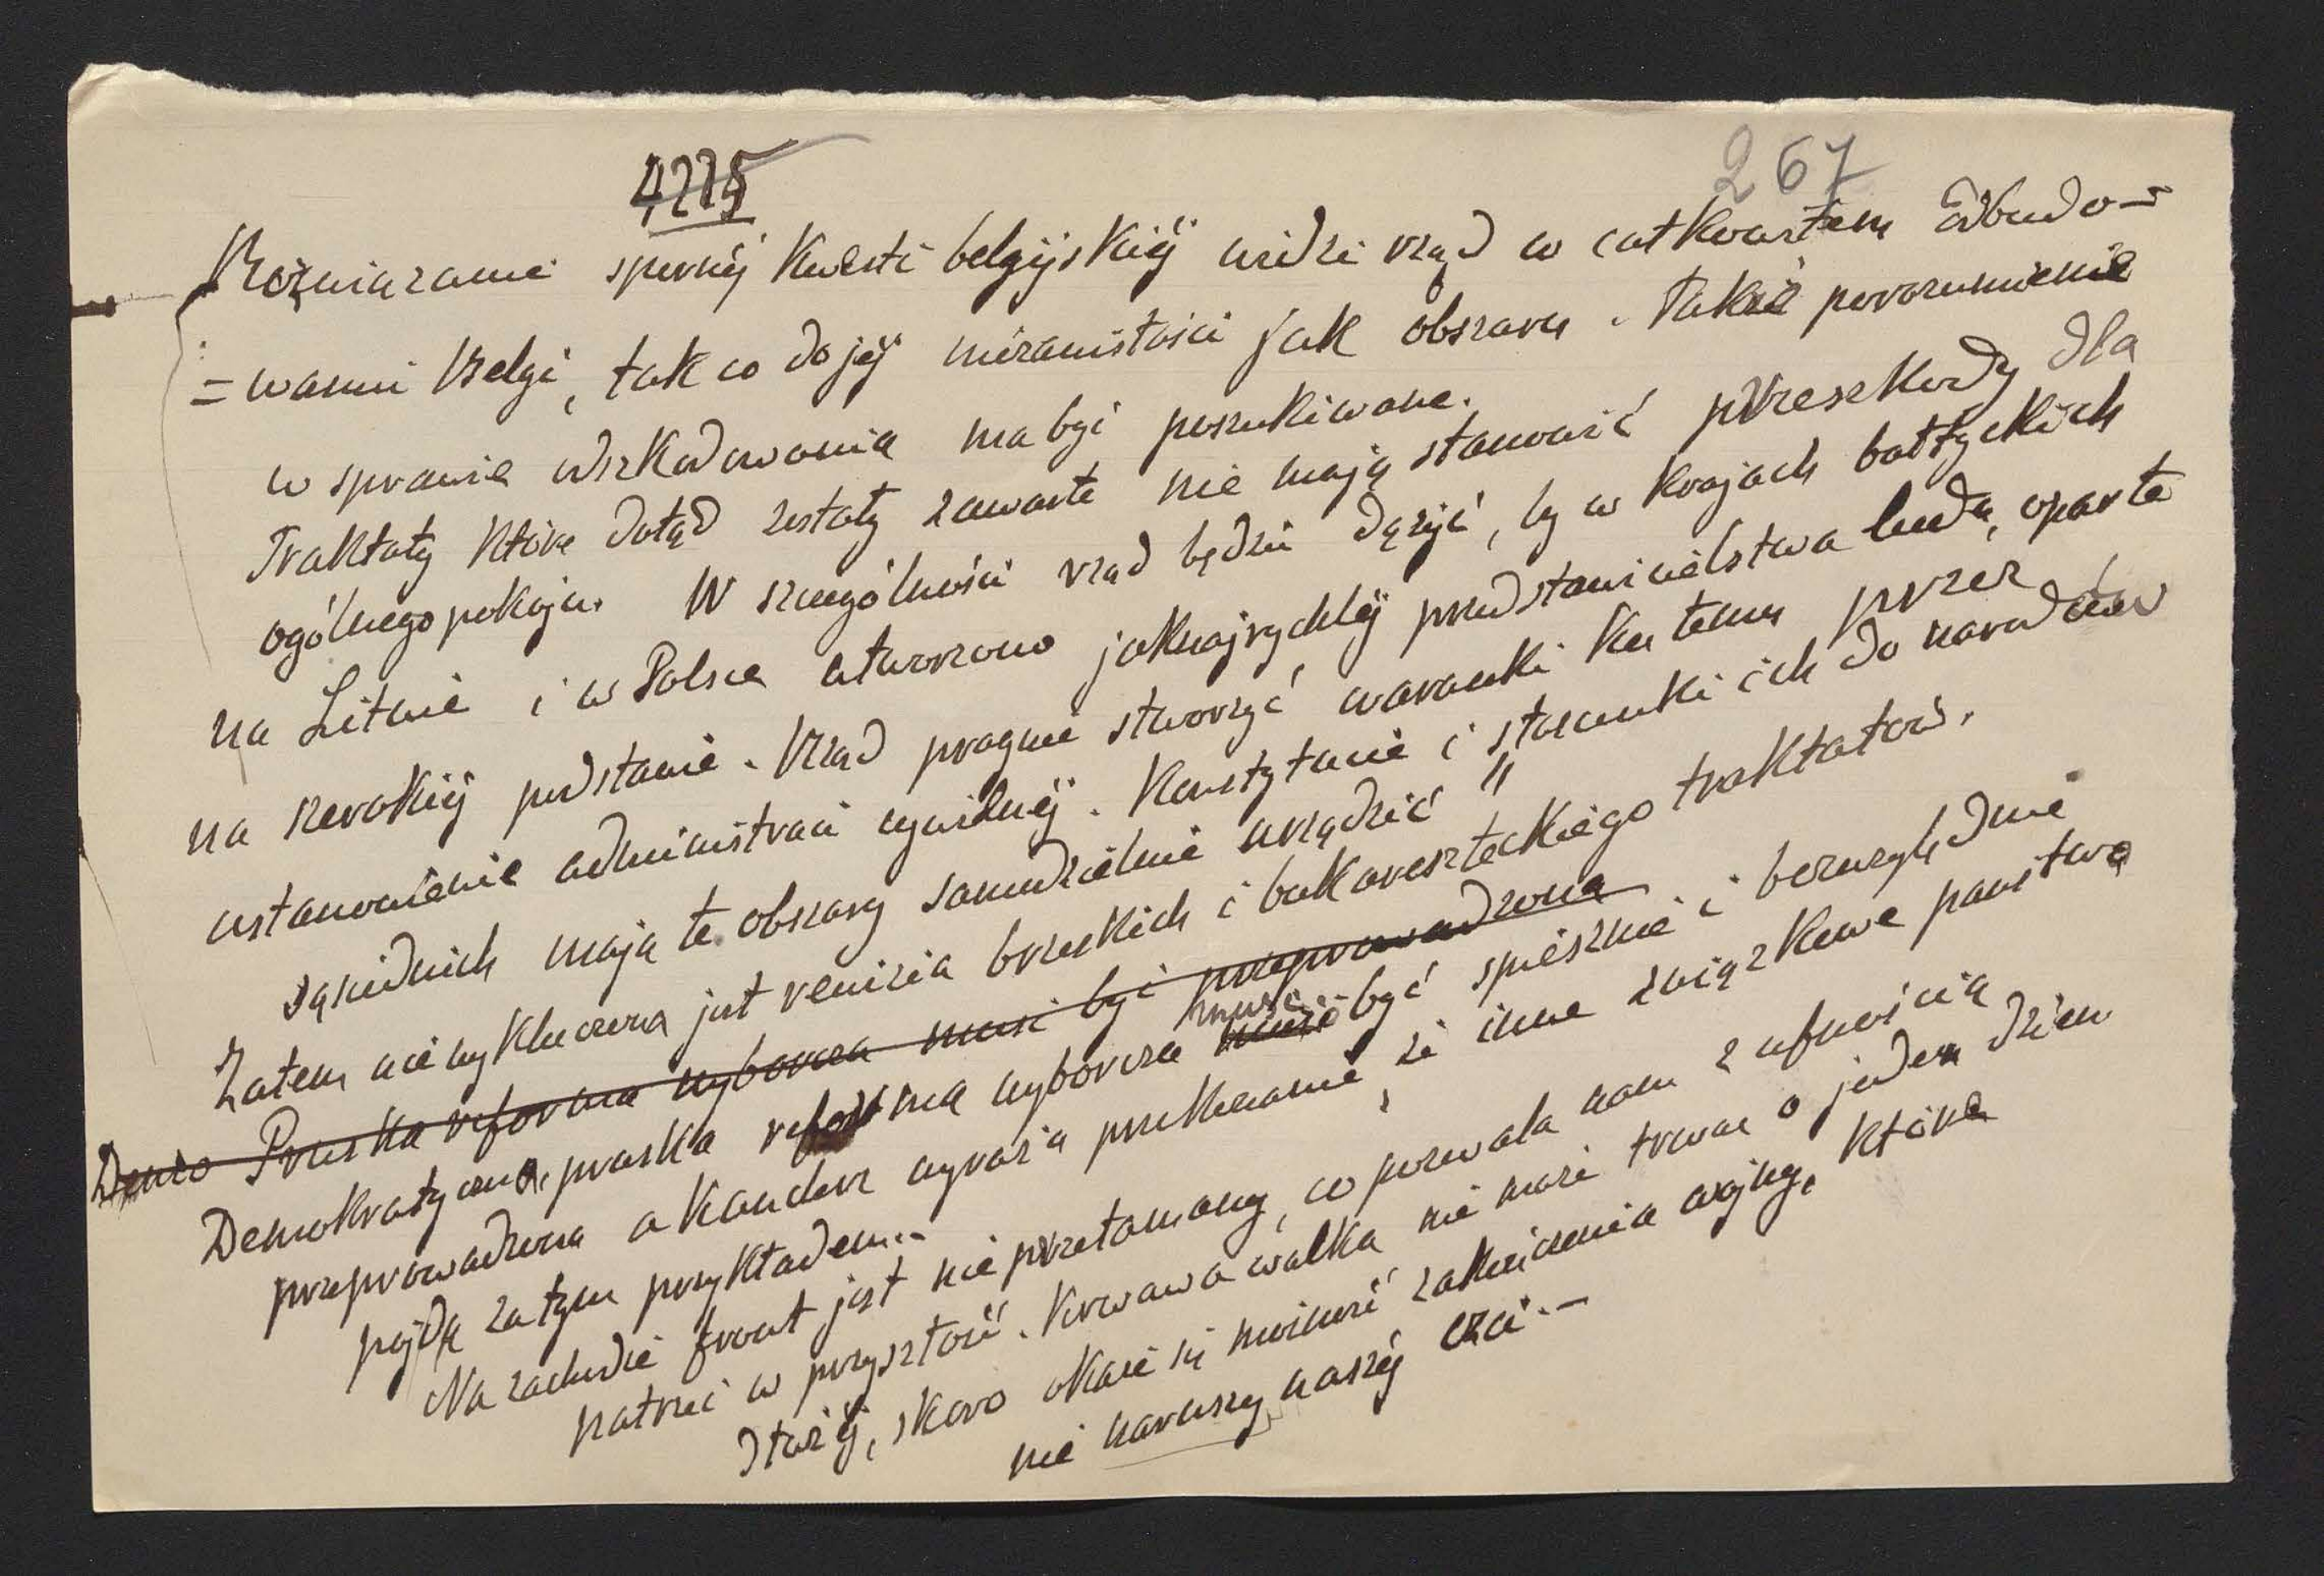 4225
267
Rozwiązanie spornéj kwesti belgijskiéj widzi rząd w całkowitem odbudo-
= waniu Belgi, tak co do jéj niezawisłości jak obszaru. Także porozumienie
w sprawie odszkodowania ma być poszukiwane.
Traktaty które dotąd zostały zawarte nie mają stanowić przeszkody dla
ogólnego pokoju. W szczególności rząd będzie dążyć, by w krajach bałtyckich
na Litwie i w Polsce utworzono jaknajrychléj przedstawicielstwa ludu, oparte
na szerokiéj podstawie. Rząd pragnie stworzyć warunki ku temu przez
ustanowienie administraci cywilnéj. Konstytucie i stosunki ich do narodów
sąsiednich mają te obszary samodzielnie urządzić "
Zatem nie wykluczona jest rewizia brzeskich i bukaresztckiego traktatów.
Demo Pruska reforma wyborcza musi być przeprowadzona
Demokratyczna, pruska reforma wyborcza musi być spiesznie i bezwzględnie
przeprowadzona a kanclerz wyraża przekonanie, że inne związkowe państwa
pojdą za tym przykładem..
Na zachodzie front jest nie przełamany, co pozwala nam z ufnością
patrzeć w przyszłość. Krwawa walka nie może trwać o jeden dzień
dłużéj, skoro okaże się możność zakończenia wojny, która
nie naruszy naszéj czci. –